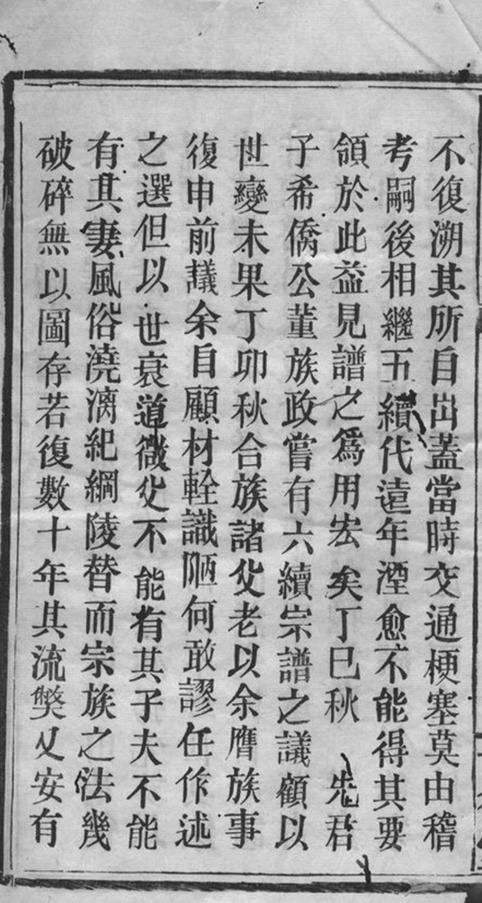 不復溯其所自出蓋當時交通梗塞莫由稽
考嗣後相繼五續代遠年湮愈不能得其要
領於此益見譜之爲用宏矣丁巳秋　先君
子希僑公董族政嘗有六續宗譜之議顧以
世變未果丁卯秋合族諸父老以余膺族事
復申前議余自顧材輇識陋何敢謬任作述
之選但以世衰道微父不能有其子夫不能
有其妻風俗澆漓紀綱陵替而宗族之法幾
破碎無以圖存若復數十年其流獘又安有